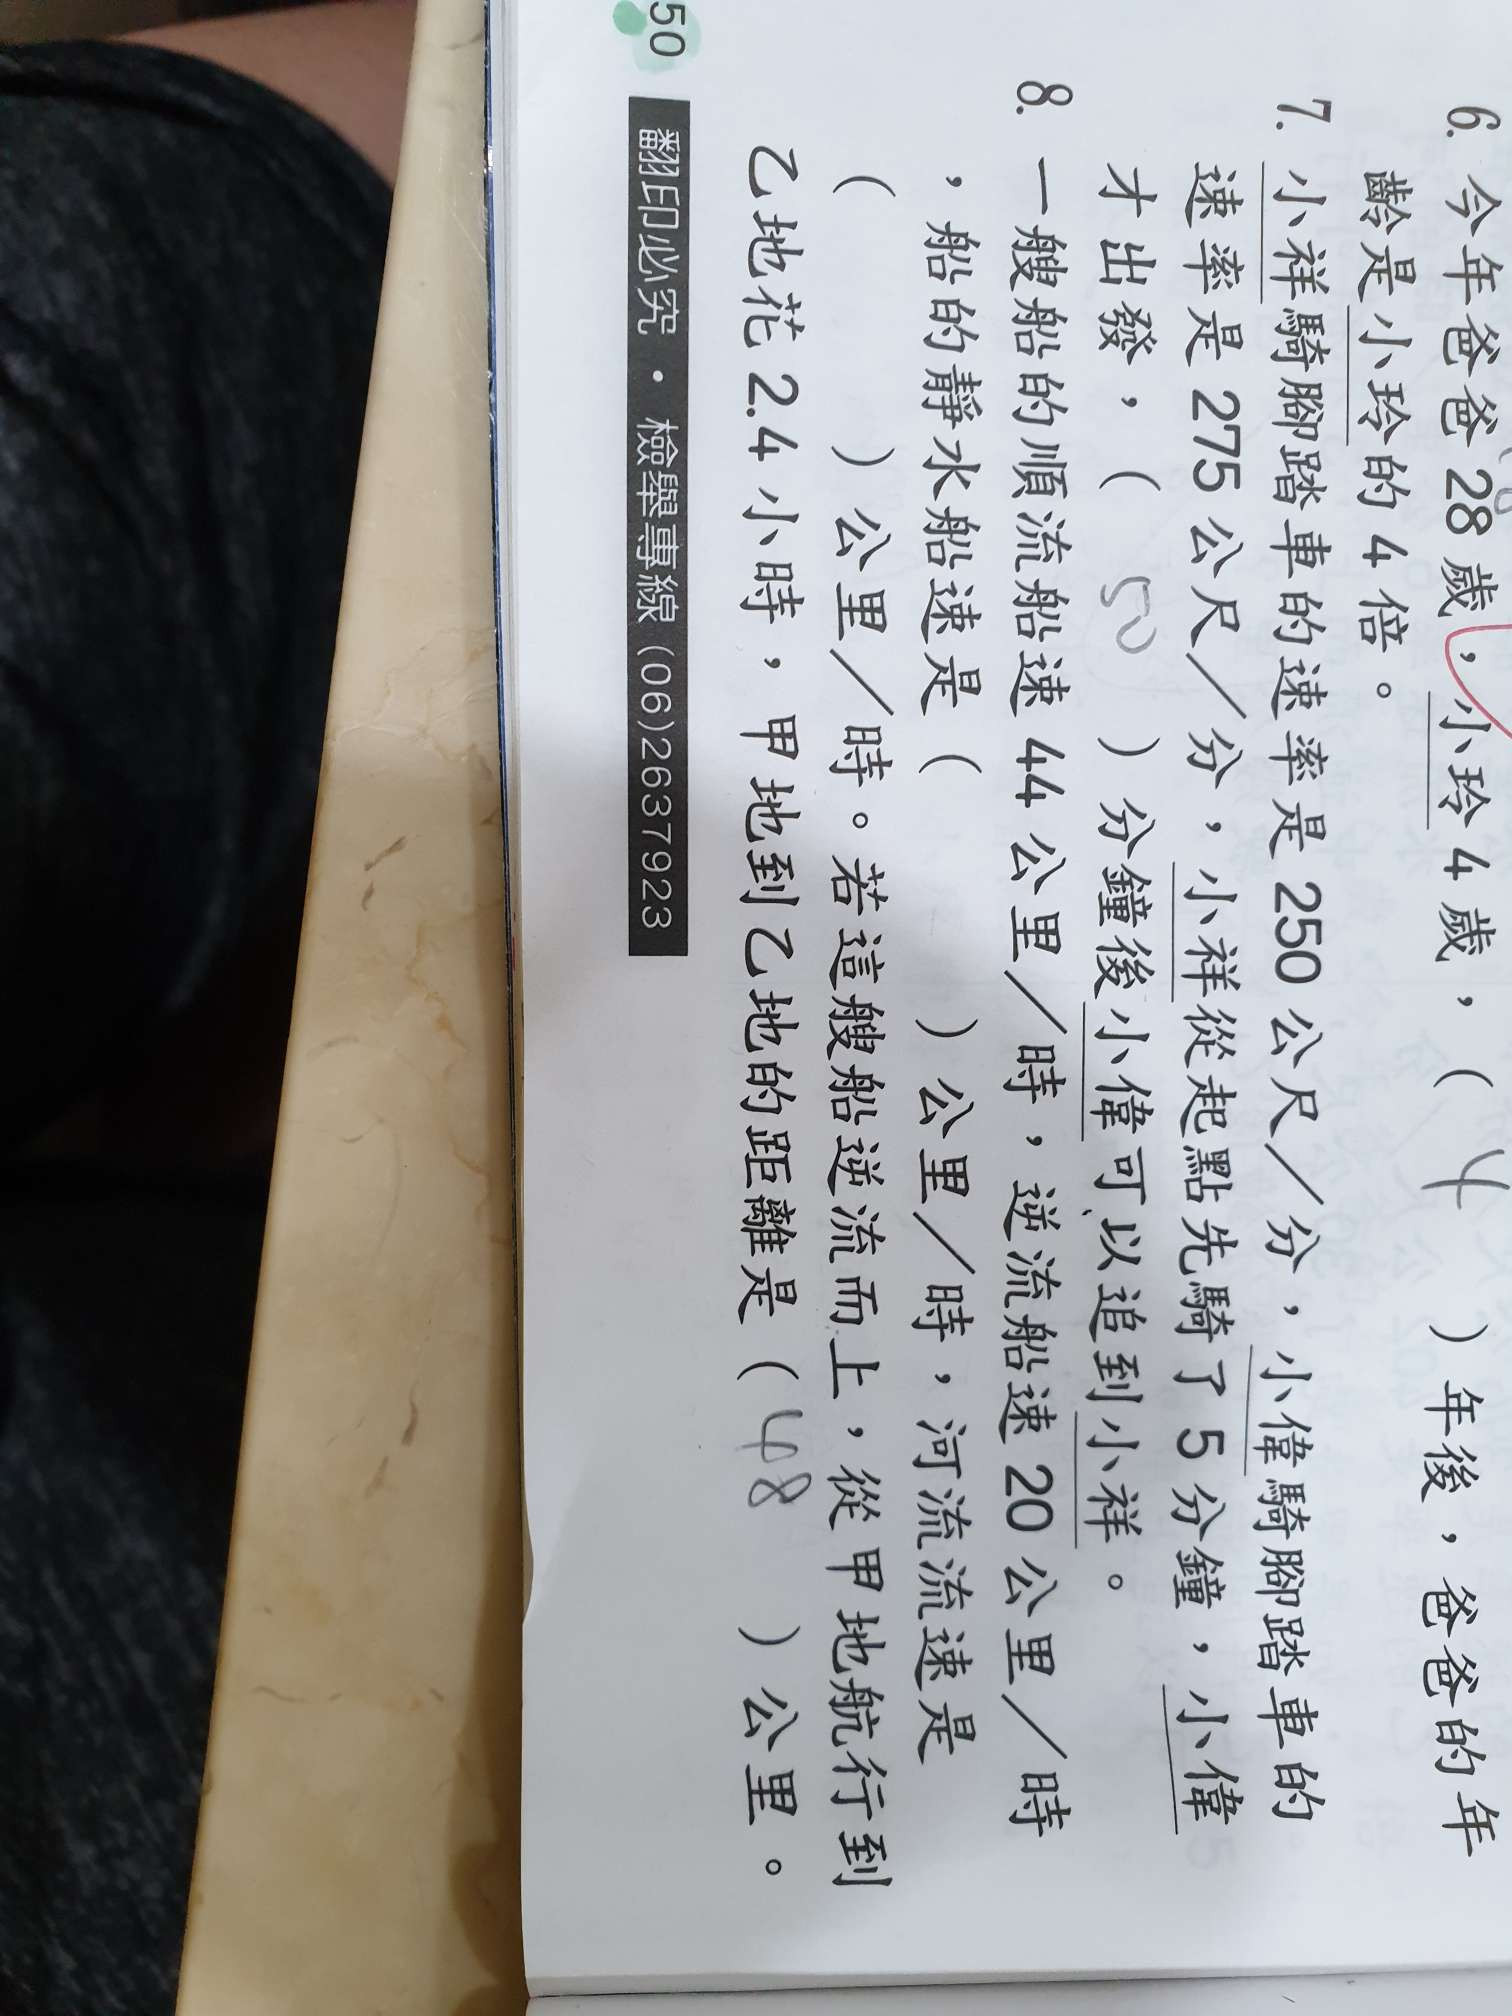 6. 今年爸爸 28 歲，小玲 4 歲，( 4 ) 年後，爸爸的年
齡是小玲的 4 倍。
7. 小祥騎腳踏車的速率是 250 公尺／分，小偉騎腳踏車的
速率是 275 公尺／分，小祥從起點先騎了 5 分鐘，小偉
才出發，( 50 ) 分鐘後小偉可以追到小祥。
8. 一艘船的順流船速 44 公里／時，逆流船速 20 公里／時
，船的靜水船速是 ( ) 公里／時，河流流速是
( ) 公里／時。若這艘船逆流而上，從甲地航行到
乙地花 2.4 小時，甲地到乙地的距離是 ( 48 ) 公里。
50 翻印必究・檢舉專線 (06)2637923